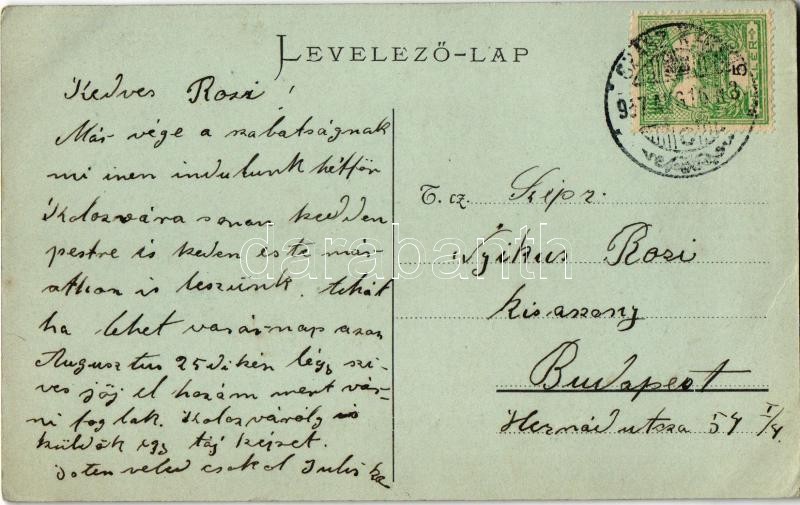 LEVELEZŐ-LAP
Kedves Rozi!
Már vége a szabatságnak
mi inen indulunk hétfőn
Kolozsvára sonan kedden
pestre is keden este már
othon is leszünk. tehát
ha lehet vasárnap azaz
Augusztus 25 dikén légy szi-
ves jöj el hozám mert vár-
ni foglak. Kolozsváról is
küldök egy táj képet.
Isten veled csokol Juliska
T. cz. Szipr.
Nyikus Rozi
kisaszony
Budapest
Hernád utsza 54 I/4.
darabanth